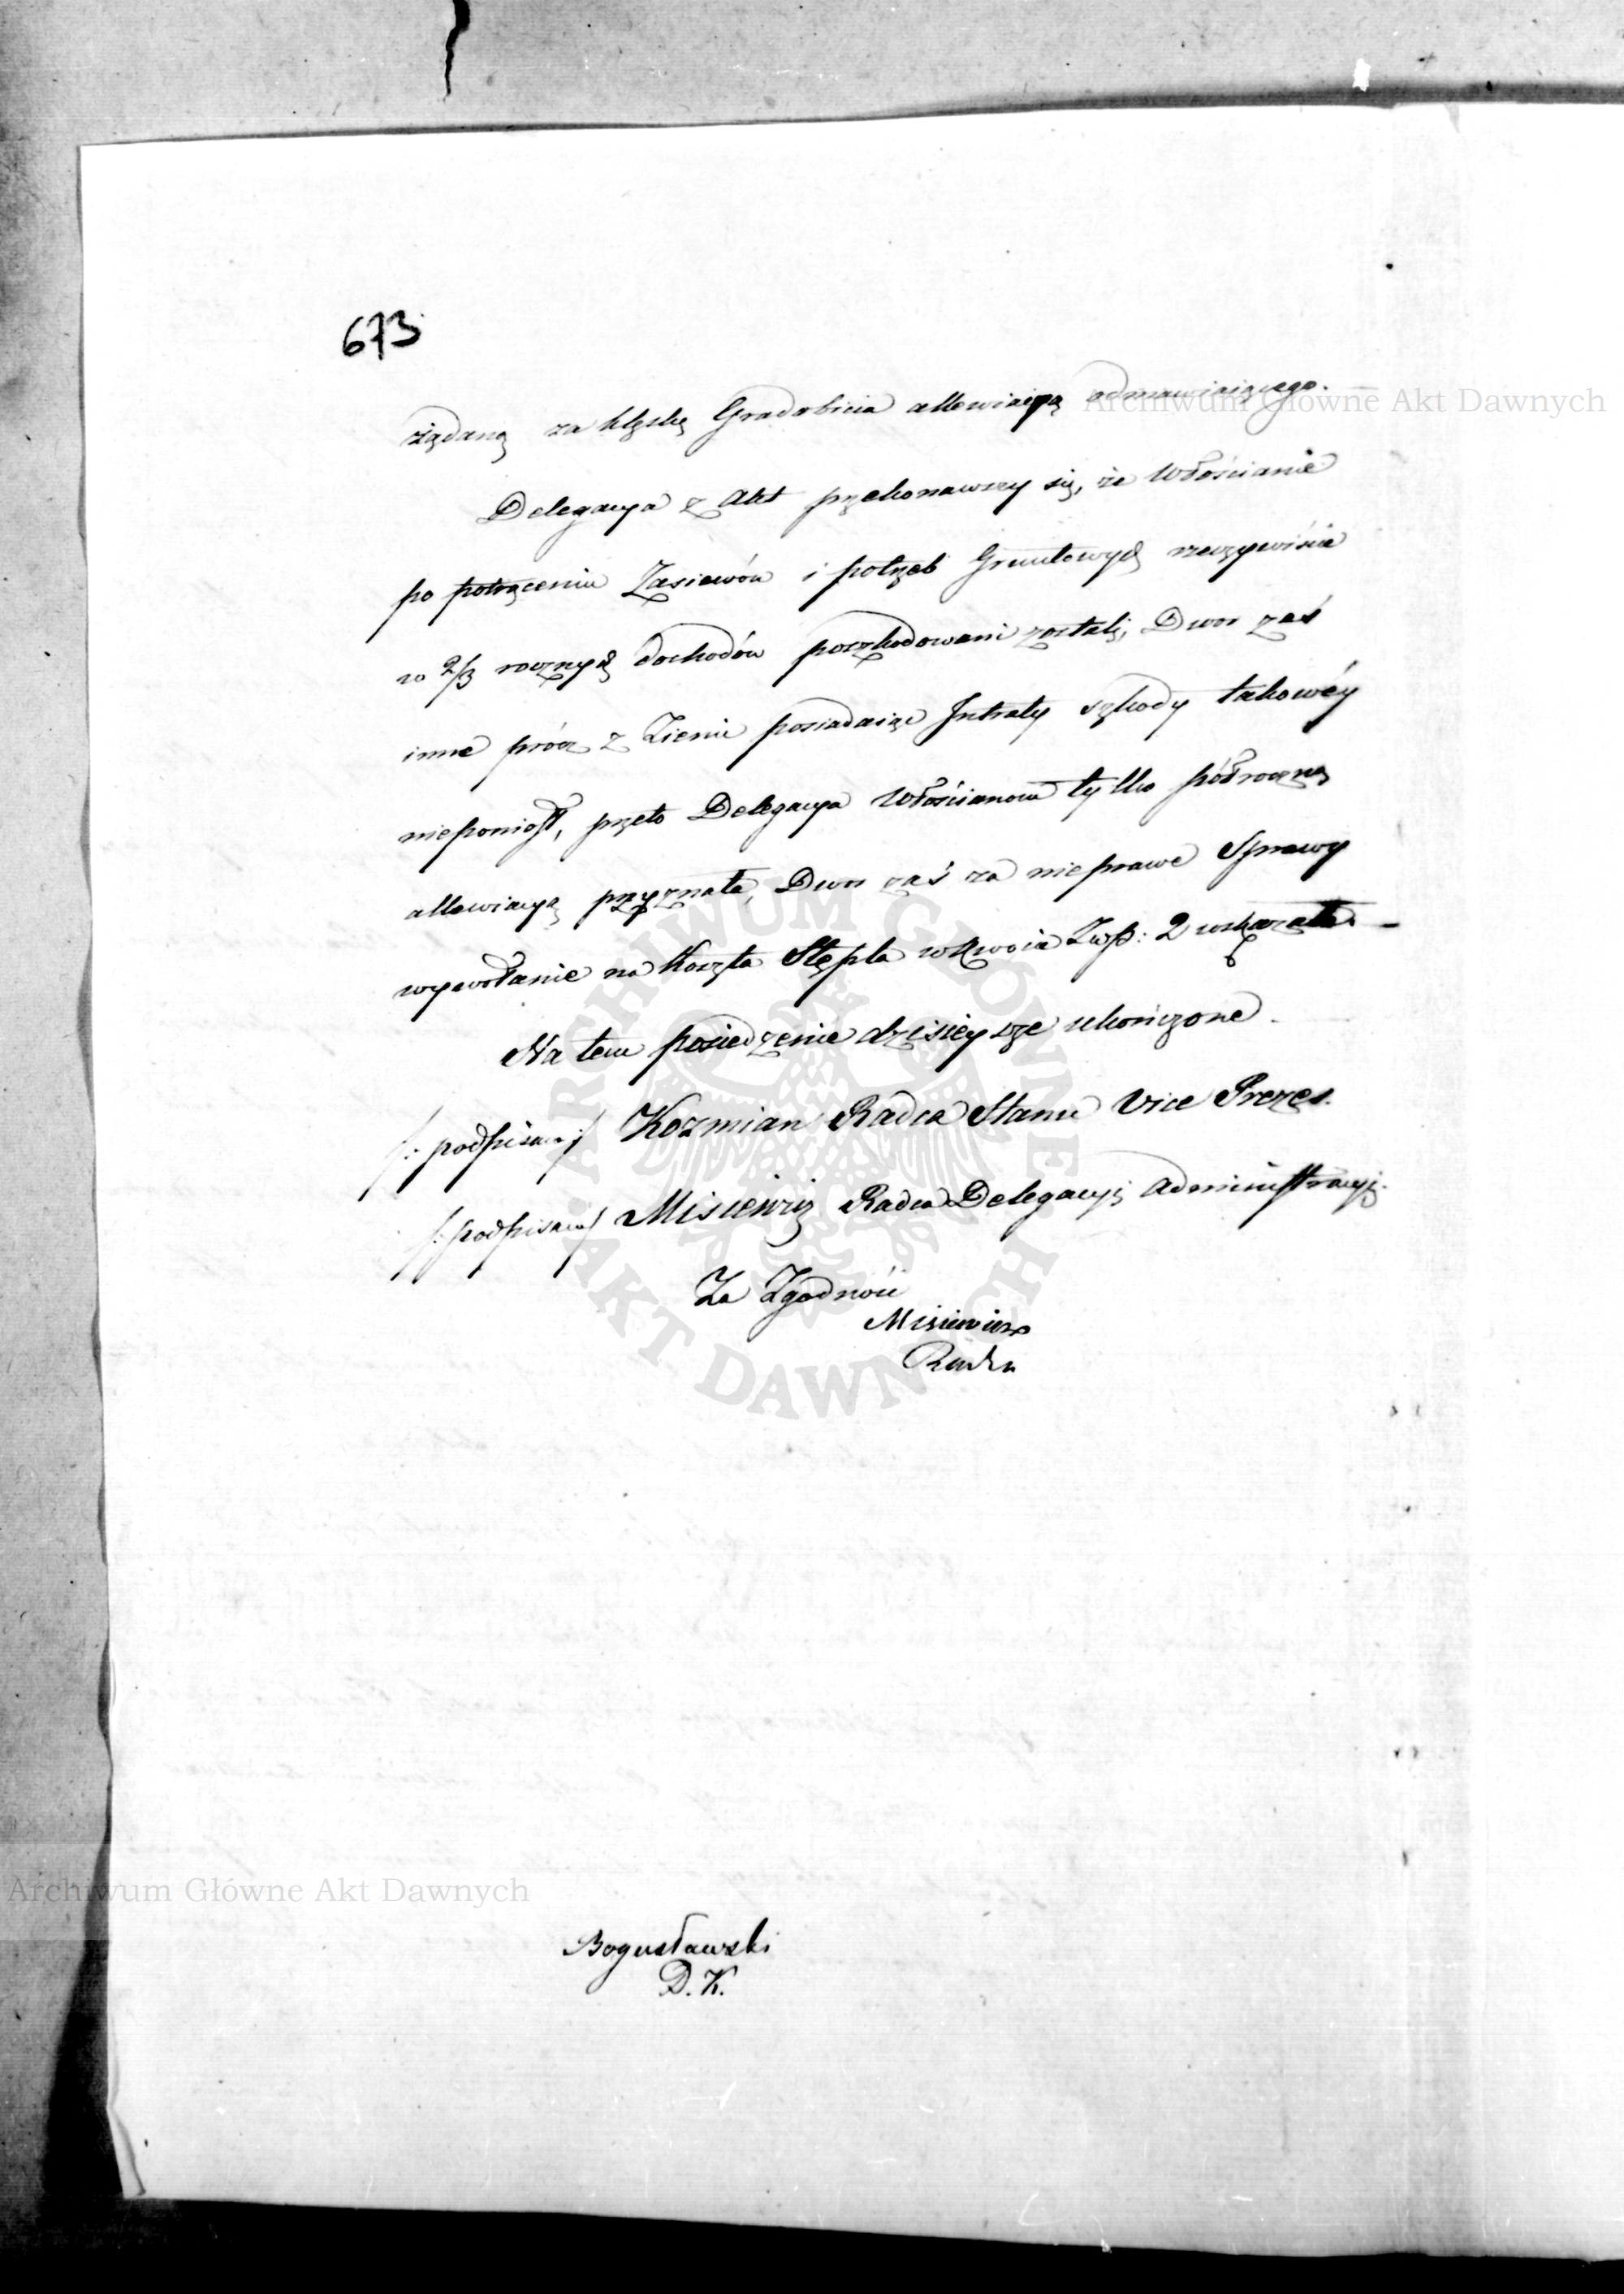 673
żądaną za klęskę Gradobicia allewiacyą odmawiaiącego. —
Delegacya z Akt przekonawszy się, że Włościanie
po potrąceniu Zasiewów i potrzeb Gruntowych rzeczywiście
w 2/3 rocznych dochodów poszkodowani zostali, Dwor zaś
inne prócz z Ziemi posiadaiąc Intraty szkody takowéy
nieponiosł, przeto Delegacya Włościanom tylko półroczną
allewiacyą przyznała, Dwor zaś za nieprawe Sprawy
wywołanie na Koszta Stępla w Kwocie Zwp: 2 wskazała. —
Na tem posiedzenie dzisieysze ukończone.
/: podpisany /: Kozmian Radca Stanu Vice Prezes.
/: podpisany / Misiewicz Radca Delegacyi Administracyj.
Za Zgodność
Misiewicz
Radca
Bogusławski
D. K.
Archiwum Główne Akt Dawnych
Archiwum Główne Akt Dawnych
ARCHIWUM GŁÓWNE AKT DAWNYCH